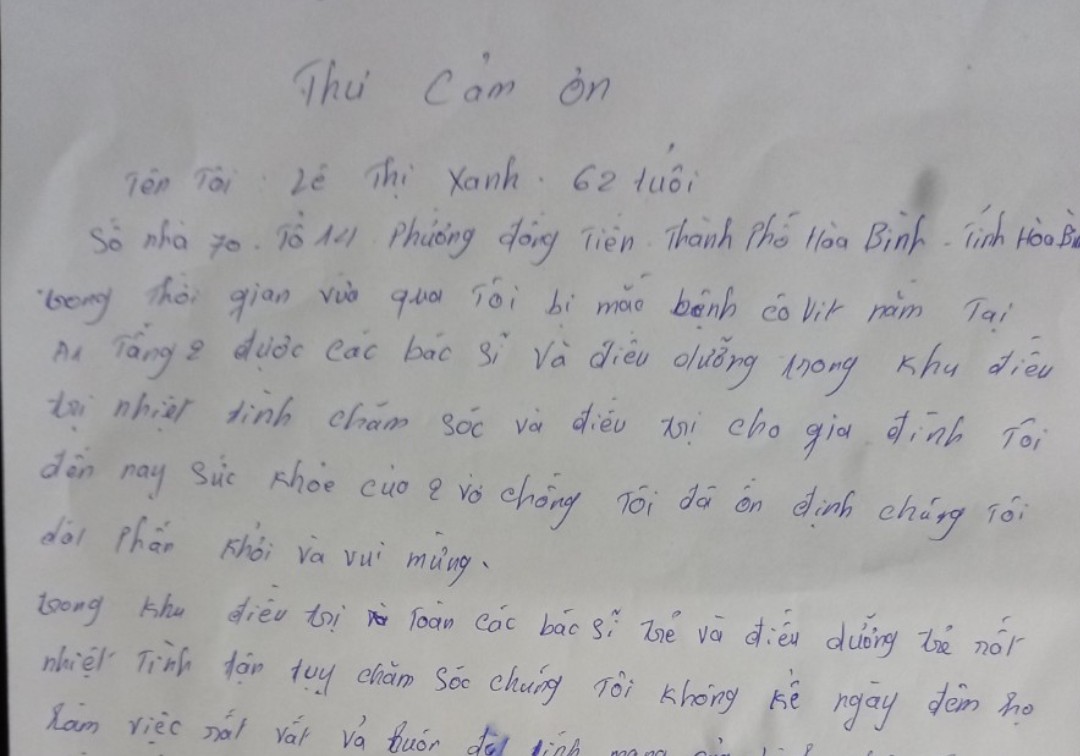 Thư Cảm ơn
Tên Tôi: Lê Thị Xanh. 62 tuổi
Số nhà 70. Tổ 14 Phường đồng Tiến. Thành Phố Hòa Bình. Tỉnh Hòa Bì
trong Thời gian vừa qua Tôi bị mắc bệnh cô vit nằm Tại
A1 Tầng 2 được các bác sĩ và điều dưỡng trong khu điều
trị nhiệt tình chăm sóc và điều trị cho gia đình Tôi
đến nay sức khỏe của 2 vợ chồng Tôi đã ổn định chúng Tôi
rất Phấn khởi và vui mừng.
trong khu điều trị Toàn các bác sĩ trẻ và điều dưỡng trẻ rất
nhiệt Tình tận tụy chăm sóc chúng Tôi không kể ngày đêm họ
làm việc rất vất vả